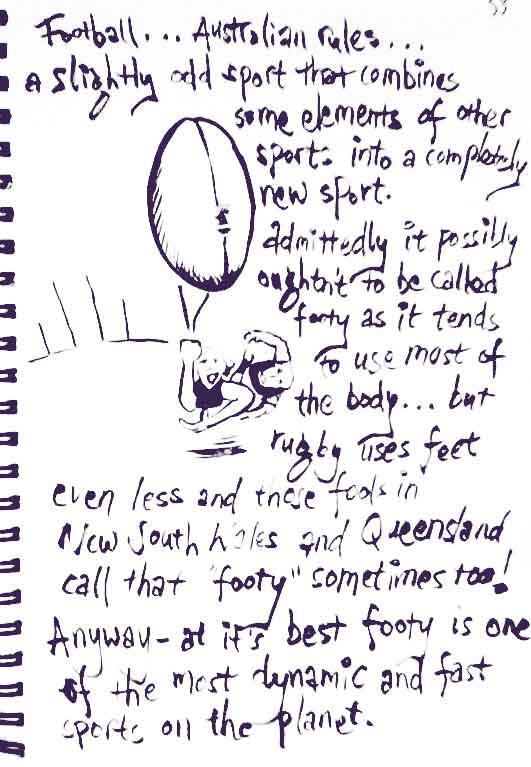 Football... Australian rules...
a slightly odd sport that combines
some elements of other
sports into a completely
new sport.
admittedly it possibly
oughtn't to be called
footy as it tends
to use most of
the body... but
rugby uses feet
even less and these fools in
New South Wales and Queensland
call that "footy" sometimes too!
Anyway - at it's best footy is one
of the most dynamic and fast
sports on the planet.